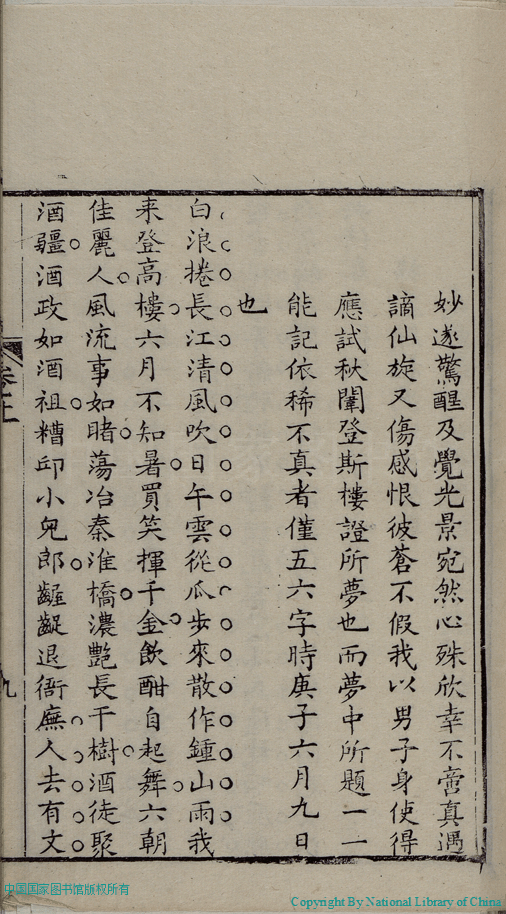 妙遂驚醒及覺光景宛然心殊欣幸不啻真遇
謫仙旋又傷感恨彼蒼不假我以男子身使得
應試秋闈登斯樓證所夢也而夢中所題一一
能記依稀不真者僅五六字時庚子六月九日
也
白浪捲長江清風吹日午雲從瓜步來散作鍾山雨我
来登高樓六月不知暑買笑揮千金飲酣自起舞六朝
佳麗人風流事如睹蕩冶秦淮橋濃艷長干樹酒徒聚
酒疆酒政如酒祖糟邱小兒郎齷齪退衙廡人去有文
九
中国国家图书馆版权所有
Copyright By National Library of China